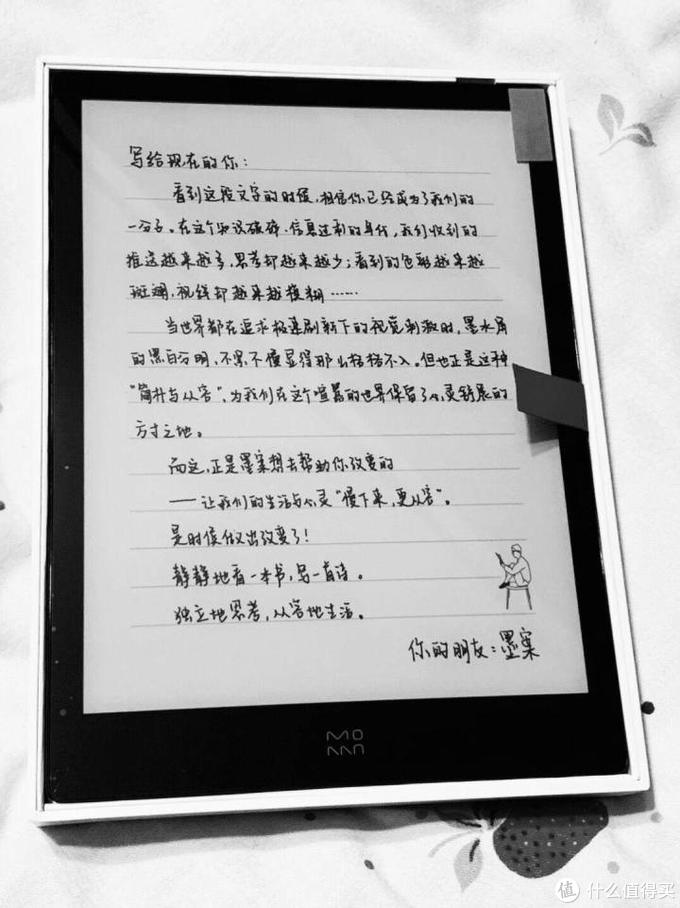 写给现在的你：
看到这段文字的时候，相信你已经成为了我们的
一分子。在这个知识破碎、信息过剩的年代，我们收到的
推送越来越多，思考却越来越少；看到的色彩越来越
斑斓，视线却越来越模糊……
当世界都在追求极速刷新下的视觉刺激时，墨水屏
的黑白分明，不累不慢显得那么格格不入。但也正是这种
“简朴与从容”，为我们在这个喧嚣的世界保留了心灵舒展的
方寸之地。
而这，正是墨案想去帮助你改变的
——让我们的生活与心灵“慢下来，更从容”。
是时候做出改变了！
静静地看一本书，写一首诗。
独立地思考，从容地生活。
你的朋友：墨案
MOAN
值 什么值得买